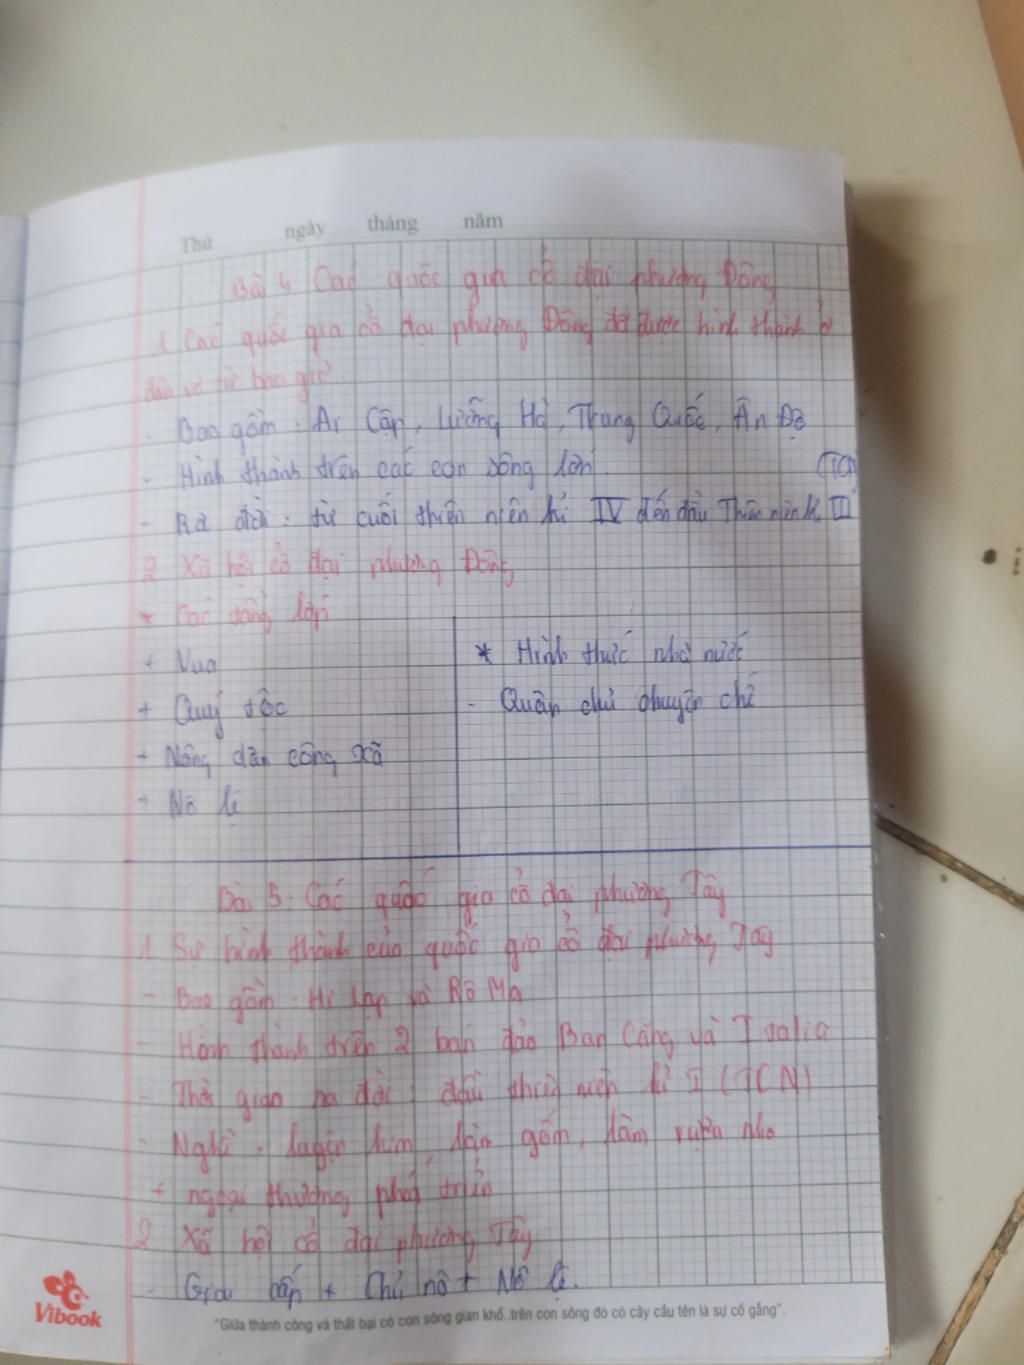 Thứ ngày tháng năm
Bài 4 Các quốc gia cổ đại phương Đông
1 Các quốc gia cổ đại phương Đông đã được hình thành ở
đâu và từ bao giờ
- Bao gồm: Ai Cập, Lưỡng Hà, Trung Quốc, Ấn Độ
- Hình thành trên các con sông lớn (TCN)
- Ra đời: từ cuối thiên niên kỉ IV đến đầu Thiên niên kỉ III
2 Xã hội cổ đại phương Đông
* Các tầng lớp
+ Vua
+ Quý tộc
+ Nông dân công xã
+ Nô lệ
* Hình thức nhà nước
- Quân chủ chuyên chế
Bài 5: Các quốc gia cổ đại phương Tây
1 Sự hình thành của quốc gia cổ đại phương Tây
- Bao gồm: Hi Lạp và Rô Ma
- Hình thành trên 2 bán đảo Ban Căng và Italia
- Thời gian ra đời: đầu thiên niên kỉ I (TCN)
- Nghề: luyện kim, làn gốm, làm rượu nho
+ ngoại thương phát triển
2 Xã hội cổ đại phương Tây
- Giai cấp + Chủ nô + Nô lệ.
Vibook
"Giữa thành công và thất bại có con sông gian khổ, trên con sông đó có cây cầu tên là sự cố gắng".